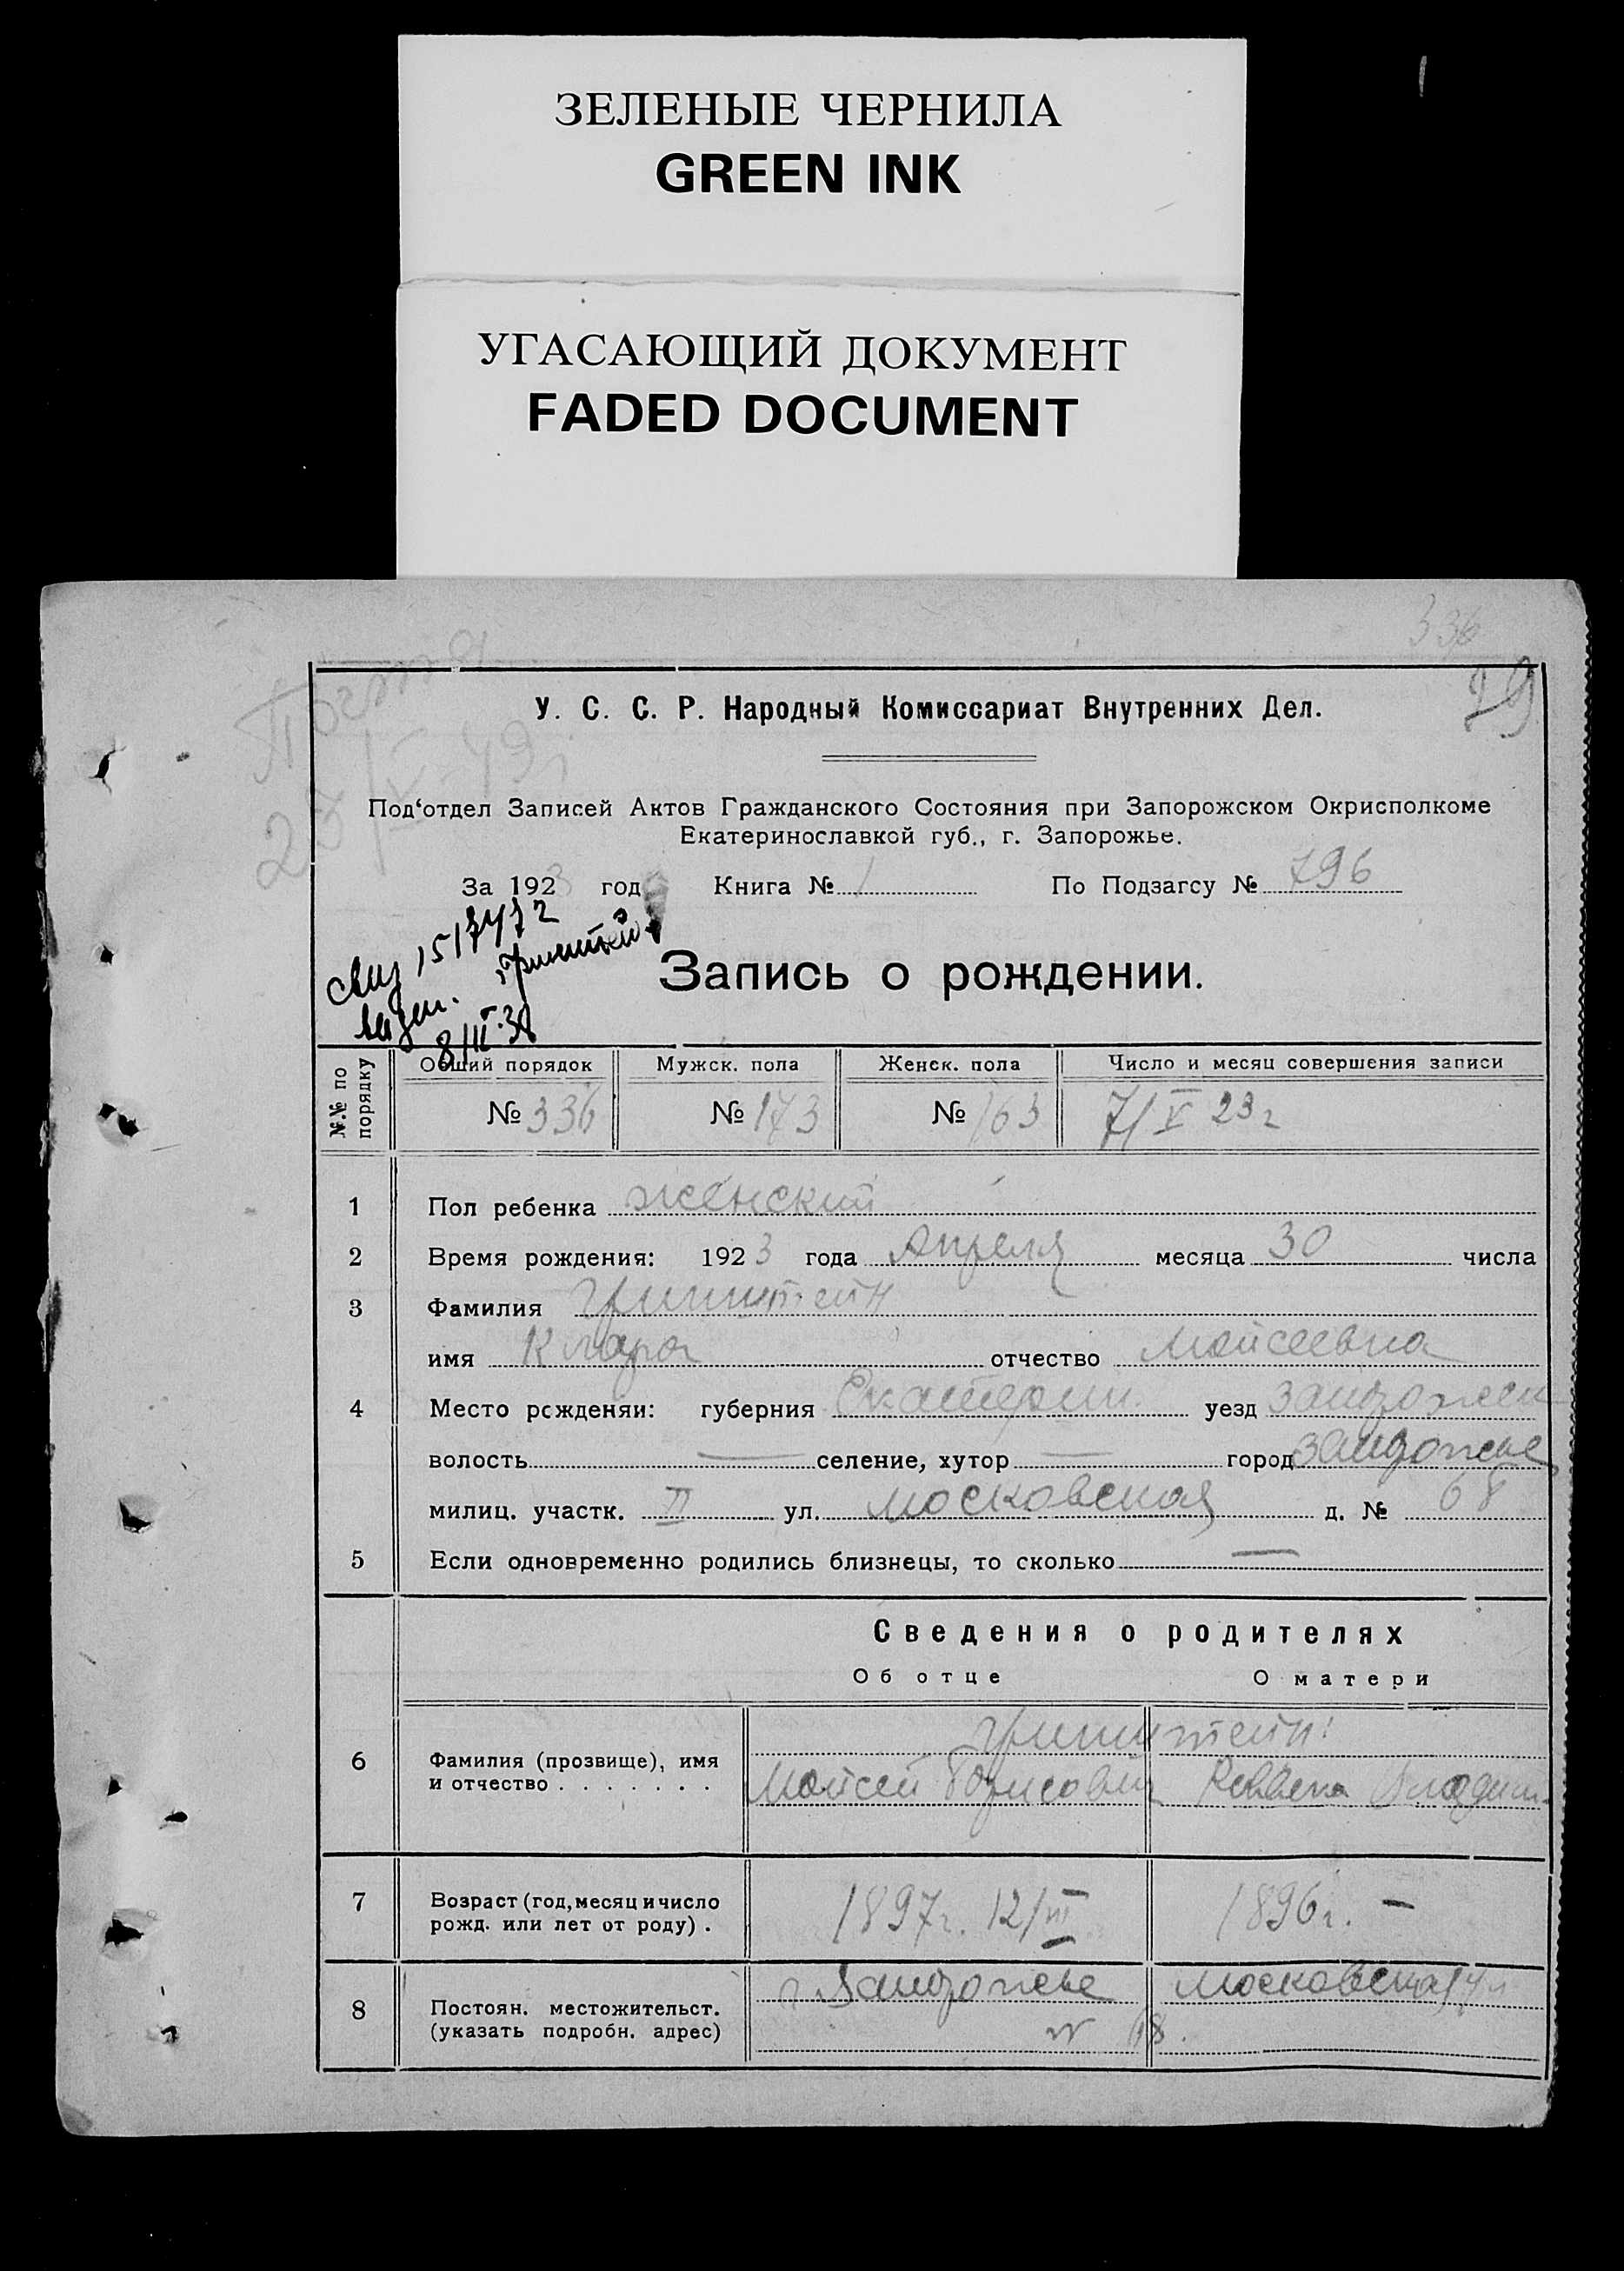 ЗЕЛЕНЫЕ ЧЕРНИЛА
GREEN INK
УГАСАЮЩИЙ ДОКУМЕНТ
FADED DOCUMENT
336
У. С. С. Р. Народный Комиссариат Внутренних Дел.
Под'отдел Записей Актов Гражданского Состояния при Запорожском Окрисполкоме
Екатеринославкой губ., г. Запорожье.
За 1923 год Книга № 1 По Подзагсу № 796
Запись о рождении.
8/III-38
№.№ по порядку Общий порядок Мужск. пола Женск. пола Число и месяц совершения записи
№ 336 № 173 № 163 7/V 23 г
1 Пол ребенка женский
2 Время рождения: 1923 года Апреля месяца 30 числа
3 Фамилия Гринштейн
имя Клара отчество Мойсеевна
4 Место рожденяи: губерния Екатерин. уезд Запорожск
волость — селение, хутор — город Запорожье
милиц. участк. II ул. Московская д. № 68
5 Если одновременно родились близнецы, то сколько —
Сведения о родителях
Об отце О матери
Гринштейн
6 Фамилия (прозвище), имя
и отчество . . . . . . . Мойсей Борисович Ревека
7 Возраст (год, месяц и число 1897г. 12/III 1896г. —
рожд. или лет от роду) .
г. Запорожье Московская ул
8 Постоян. местожительст.
(указать подробн. адрес) № 68.